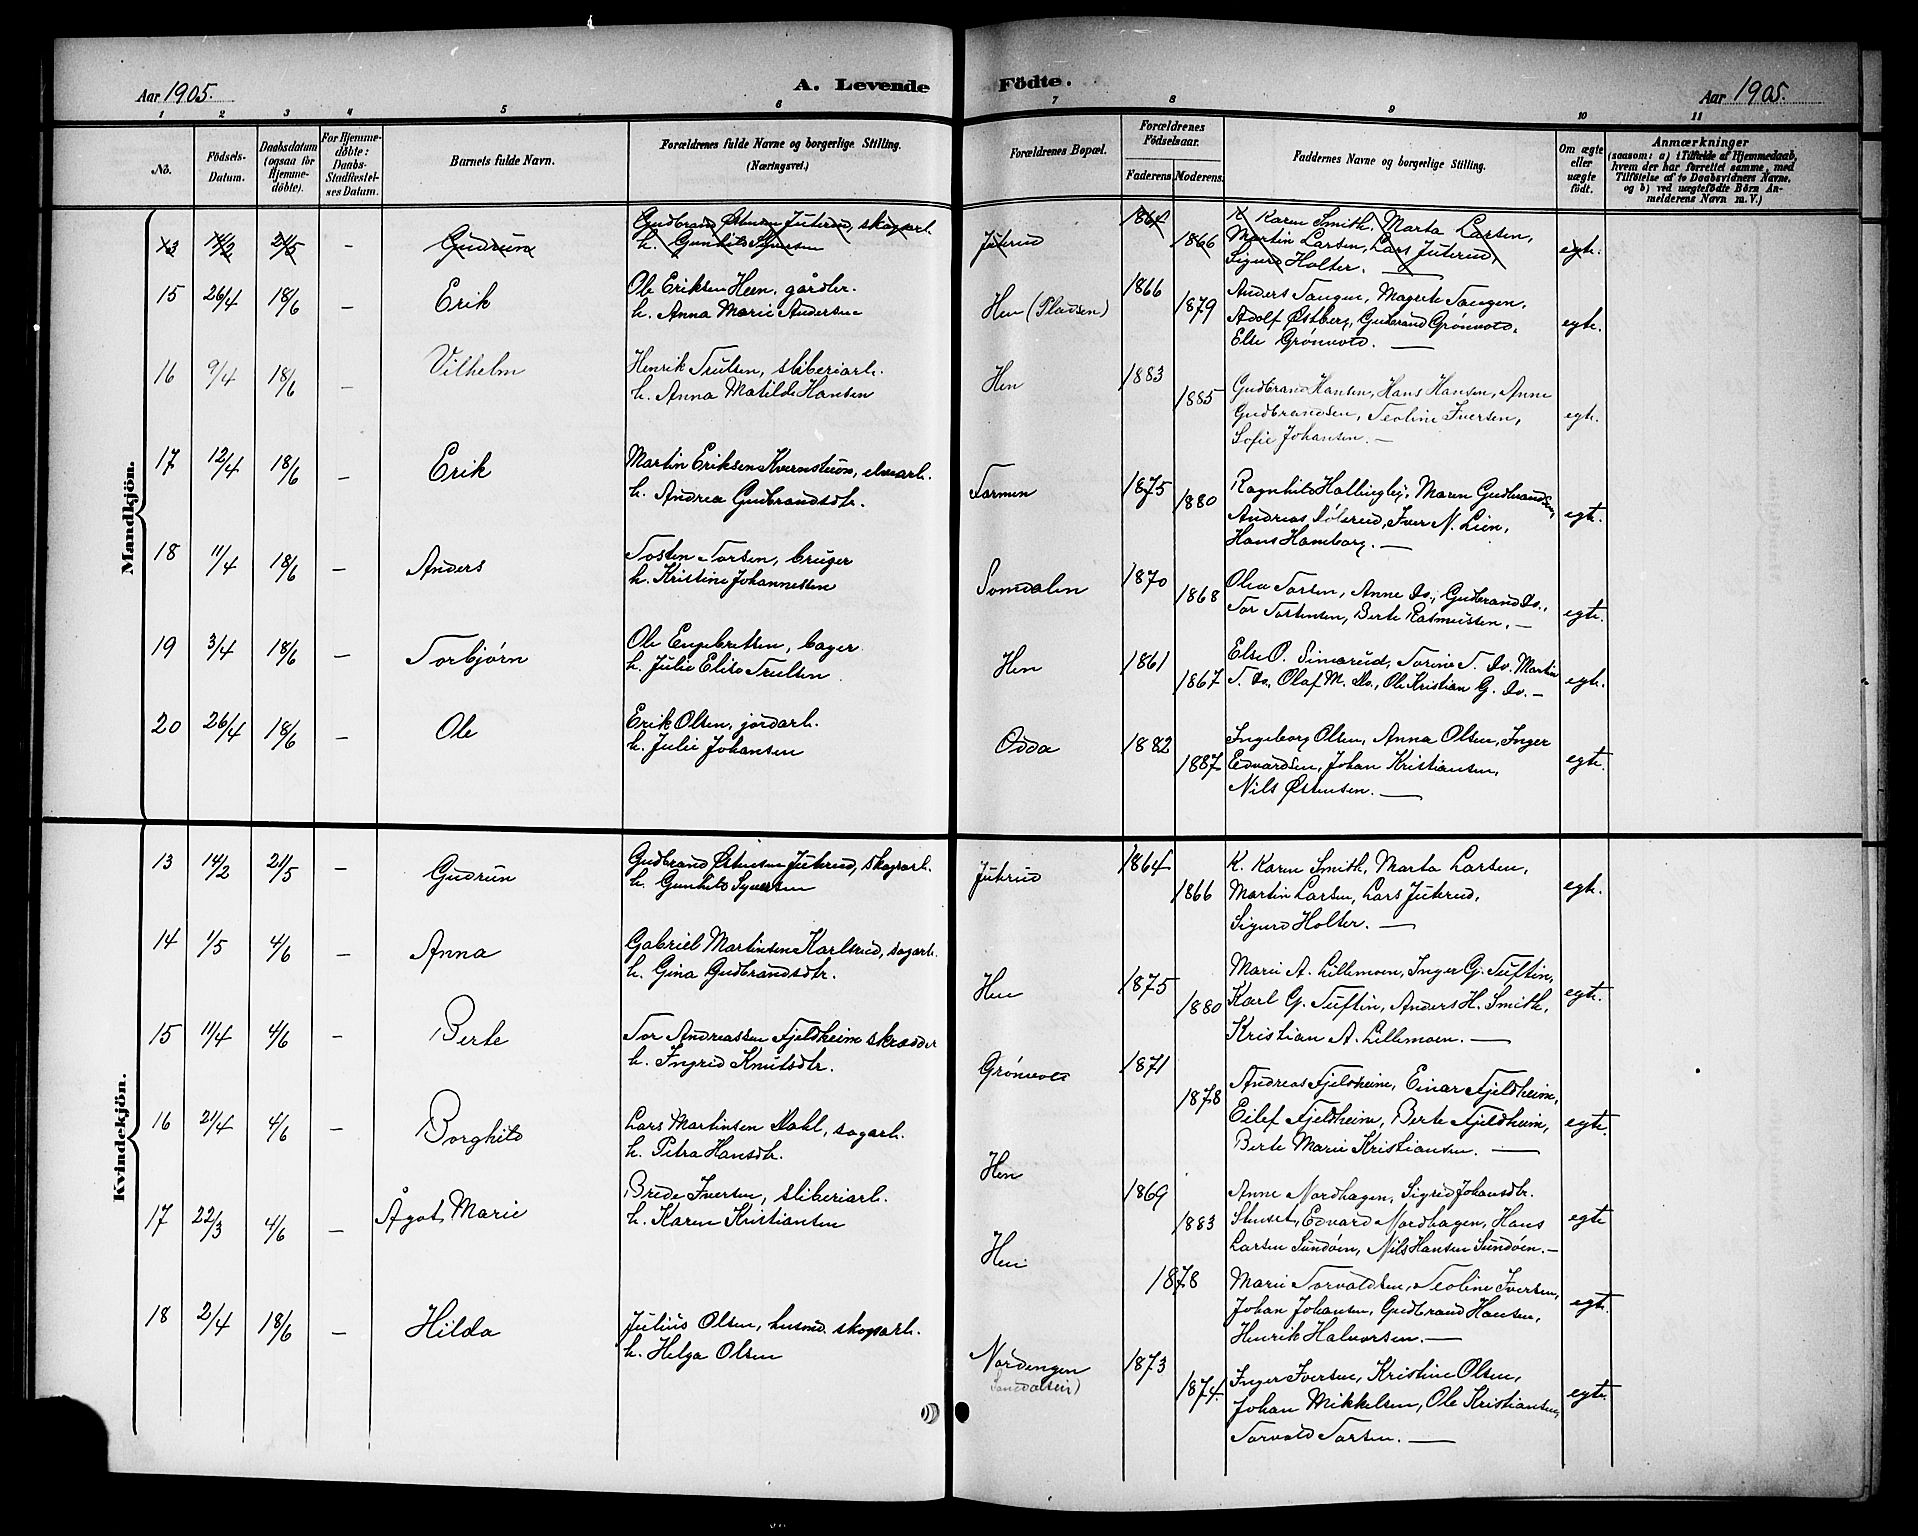 Aar 1905. A. Levende Födte. Aar 1905.
1 2 3 4 5 6 7 8 9 10 11
No. Födsels-Datum. Daabsdatum (ogsaa for Hjemmedøbte). For Hjemmedøbte: Daabs-Stadfæstelses Datum. Barnets fulde Navn. Forældrenes fulde Navne og borgerlige Stilling. (Næringsvei.) Forældrenes Bopæl. Forældrenes Födselsaar. Faderens. Moderens. Faddernes Navne og borgerlige Stilling. Om ægte eller uægte födt. Anmærkninger (saasom: a) i Tilfælde af Hjemmedaab, hvem der har forrettet samme, med Tilföielse af to Daabsvidners Navne, og b) ved uægtefödte Börn Anmelderens Navn m. V.)
Mandkjön.
13 14/2 21/5 – Gudrun Gudbrand Østensen Juterud, skogarb. Juterud 1864 K. Karen Smith, Marta Larsen,
h. Gunhild Syversen 1866 Martin Larsen, Lars Juterud, egte.
Sigurd Holter. —
15 26/4 18/6 – Erik Ole Eriksen Hern, gårdbr. Hen (Pladsen) 1866 Anders Tangen, Magrete Tangen,
h. Anna Marie Andersen 1879 Adolf Østberg, Gudbrand Grønvold, egte.
Else Grønvold. —
16 9/4 18/6 – Vilhelm Henrik Trulsen, sliberiarb. Hen 1883 Gudbrand Hansen, Hans Hansen, Anne
h. Anna Matilde Hansen 1885 Gudbrandsen, Teoline Iversen, egte.
Sofie Johansen. –
17 12/4 18/6 – Erik Martin Eriksen Kvernstuen, elvearb. Tormen 1875 Ragnhild Hallingby, Maren Gudbrandsen,
h. Andrea Gudbrandsdtr. 1880 Andreas Sølerud, Iver N. Lien, egte.
Hans Hamborg. —
18 11/4 18/6 – Anders Tosten Torsen, bruger Somdalen 1870 Olea Torsen, Anne Do., Gudbrand Do.,
h. Kristine Johannessen 1868 Tor Tostensen, Berte Rasmussen. – egte.
19 3/4 18/6 – Torbjørn Ole Engebretsen, bager Hen 1861 Else O. Simarud, Torine T. Do. Martin
h. Julie Elise Trulsen 1867 T. Do., Olaf M. Do., Ole Kristian G. Do. – egte.
20 26/4 18/6 – Ole Erik Olsen, jordarb. Odda 1882 Ingeborg Olsen, Anna Olsen, Inger
h. Julie Johansen 1887 Edvardsen, Johan Kristiansen, egte.
Nils Østensen. —
Kvindekjön.
13 14/2 21/5 – Gudrun Gudbrand Østensen Juterud, skogarb. Juterud 1864 K. Karen Smith, Marta Larsen,
h. Gunhild Syversen 1866 Martin Larsen, Lars Juterud, egte.
Sigurd Holter. —
14 1/5 4/6 – Anna Gabriel Martinsen Karlsrud, sagarb. Hen 1875 Marie A. Lillemoen, Inger G. Tuftin,
h. Gina Gudbrandsdtr. 1880 Karl G. Tuftin, Anders H. Smith, egte.
Kristian A. Lillemoen. —
15 11/4 4/6 – Berte Tor Andreassen Fjeldheim skrædder Grønvold 1871 Andreas Fjeldheim, Einar Fjeldheim,
h. Ingrid Knutsdtr. 1878 Eilef Fjeldheim, Berte Fjeldheim, egte.
Berte Marie Kristiansen. —
16 21/4 4/6 – Borghild Lars Martinsen Dahl, sagarb. Hen 1869 Anne Nordhagen, Sigrid Johansdtr.
h. Petra Hansdtr. 1883 Stuset, Edvard Nordhagen, Hans egte
Larsen Sundøen, Nils Hansen Sundøen. –
17 22/3 4/6 – Ågot Marie Brede Iversen, sliberiarb. Hen 1878 Marie Torvaldsen, Teoline Iversen,
h. Karen Kristiansen Johan Johansen, Gudbrand Hansen, egte.
Henrik Halvorsen. —
18 2/4 18/6 – Hilda Julius Olsen, husmd. skogsarb. Nordengen 1873 Inger Iversen, Kristine Olsen,
h. Helga Olsen Somdalsei) 1874 Johan Mikkelsen, Ole Kristiansen, egte.
Torvald Torsen. —